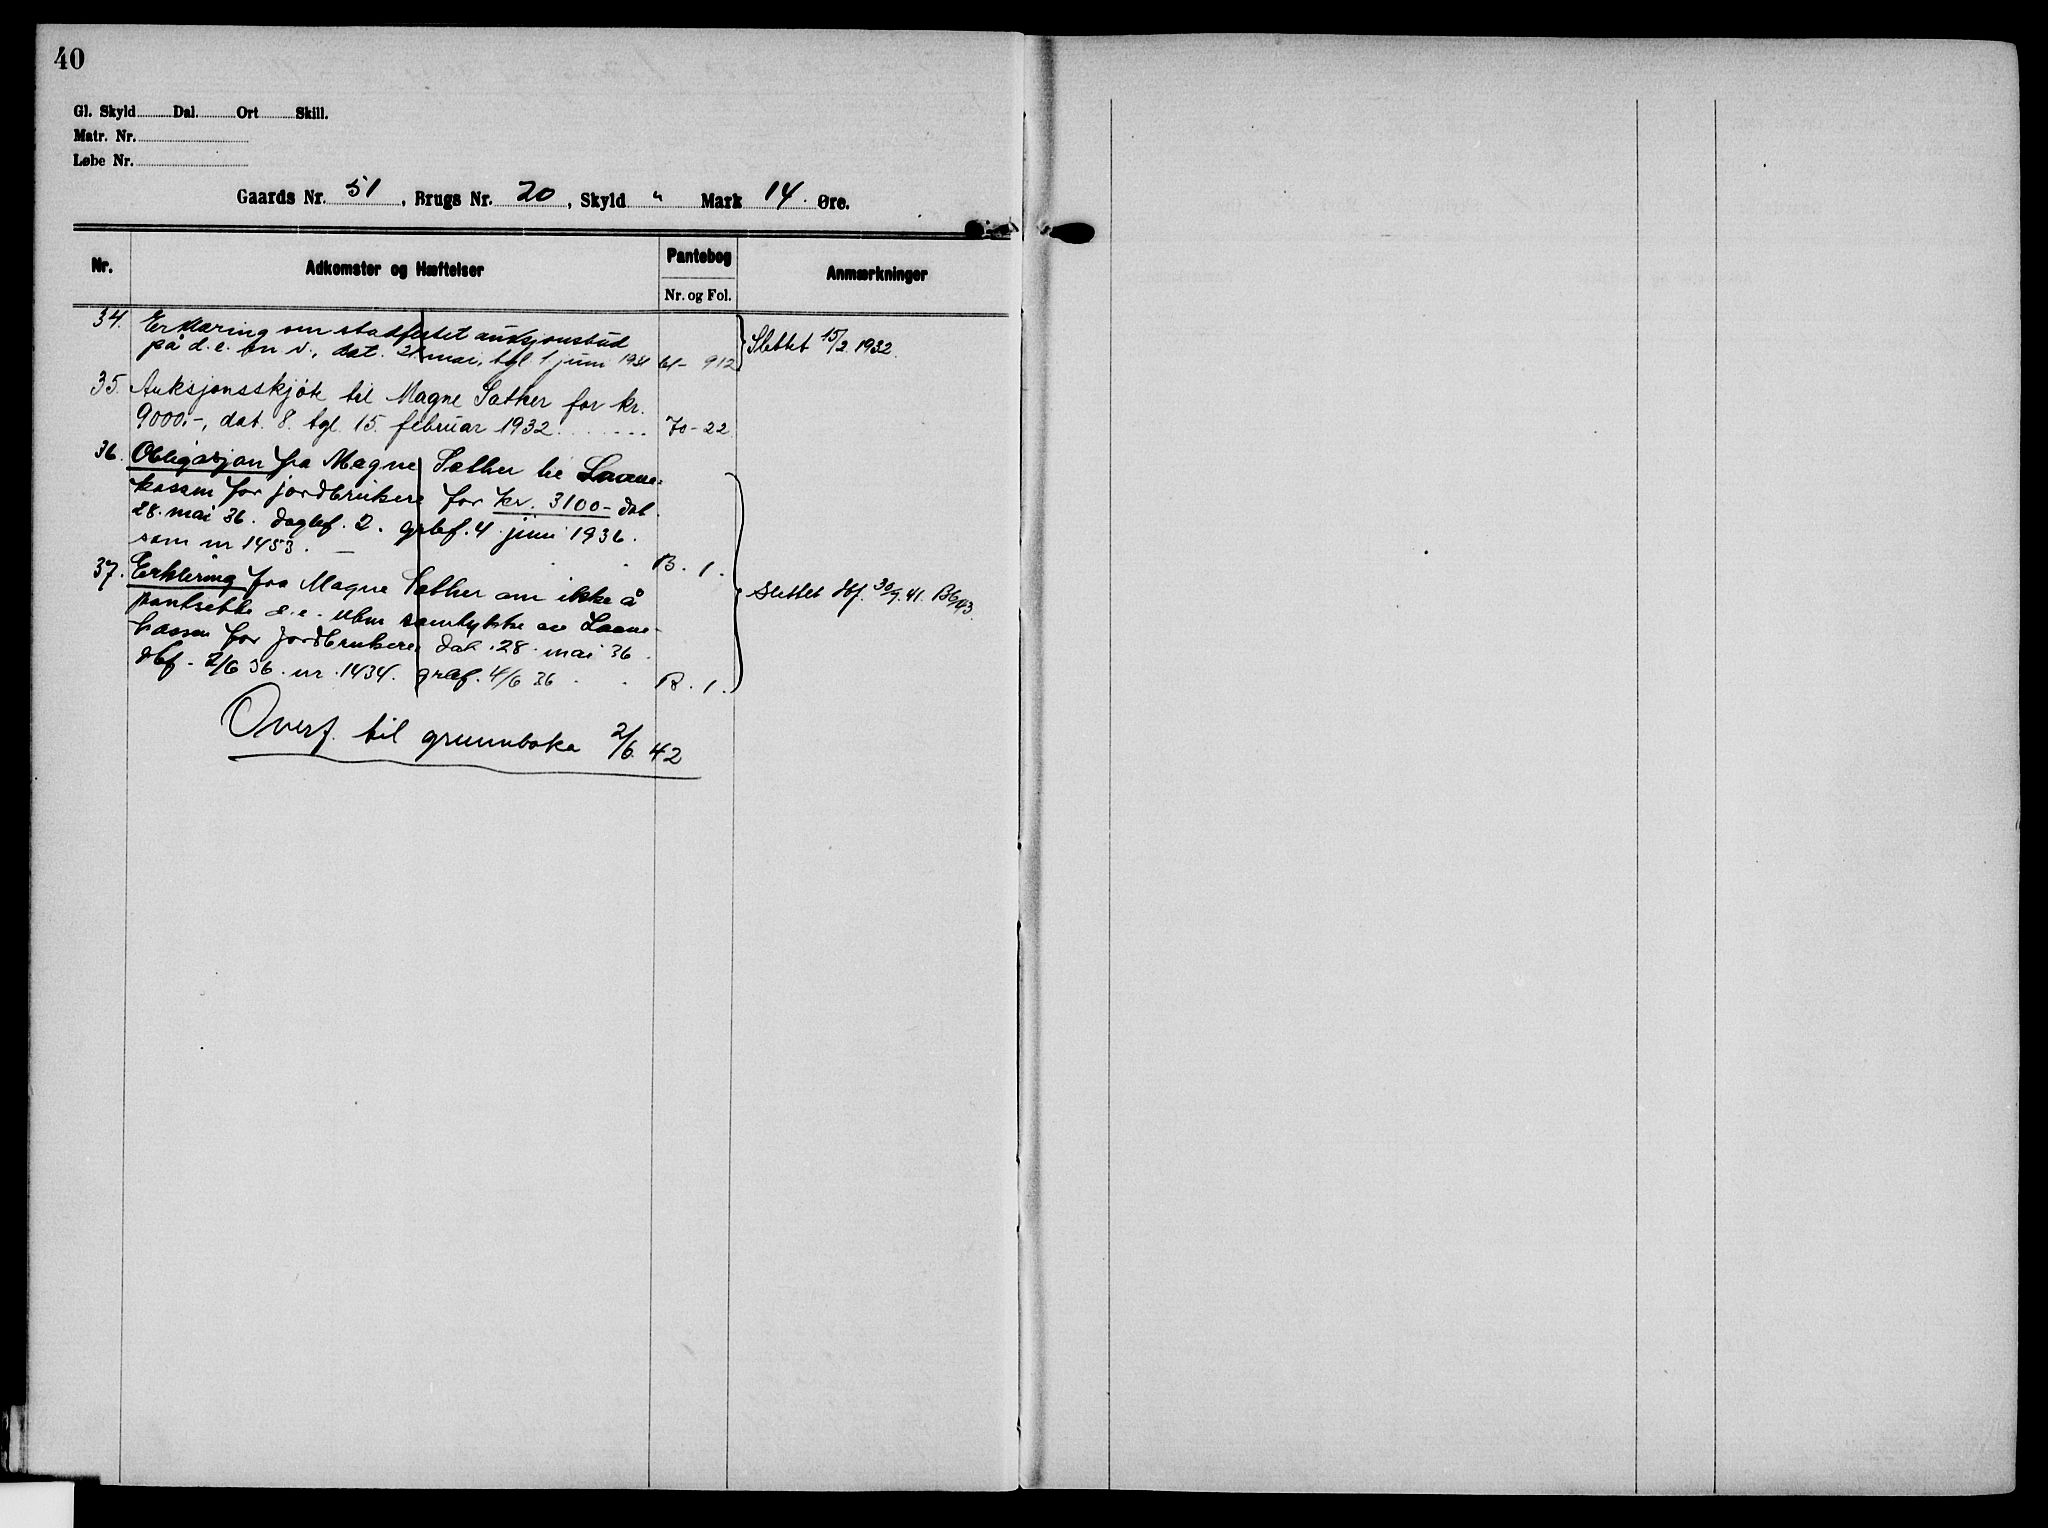 40
Gl. Skyld Dal. Ort Skill.
Matr. Nr.
Løbe Nr.
Gaards Nr. 51, Brugs Nr. 20, Skyld " Mark 14 Øre.
Nr. Adkomster og Hæftelser Pantebog Anmærkninger
Nr. og Fol.
34. Erklæring om stadfestet auksjonsbud
på d.e. m.v., dat. 21 mai, tgl. 1. juni 1931 61 - 912 Slettet 15/2 1932.
35. Auksjonsskjøte til Magne Sæther for kr.
9000.-, dat. 8. tgl. 15. februar 1932 70 - 22
36. Obligasjon fra Magne Sæther til Laane-
kassen for jordbrukere for kr. 3100- dat
28. mai 36. dagbf. 2. grbf. 4 juni 1936.
som nr 1433. B. 1.
37. Erklering fra Magne Sæther om ikke å
pantsette d.e. uten samtykke av Laane-
kassen for jordbrukere, dat. 28. mai 36.
dbf. 2/6 36. nr. 1434. grbf. 4/6 36 B. 1.
Slettet dbf. 30/9. 41. B6
Overf. til grunnboka 2/6 42